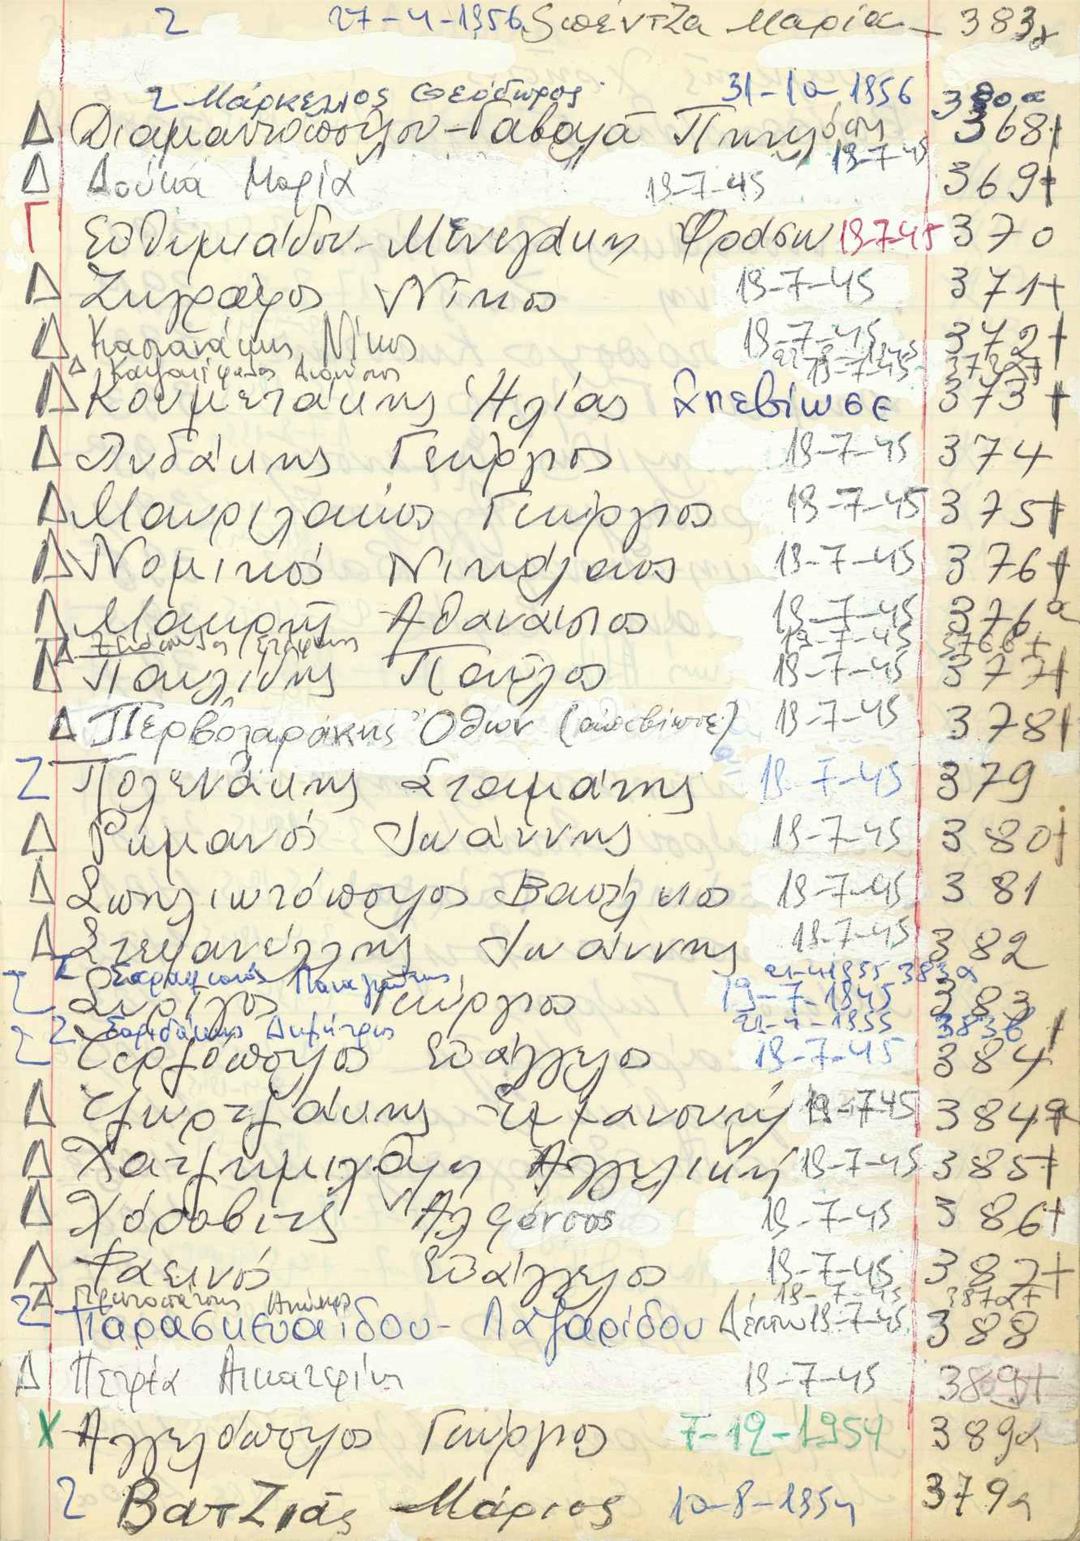 2 27-4-1956 Σπέντζα Μαρία 383γ
2 Μάρκελλος Θεόδωρος 31-10-1956 380α
Δ Διαμαντοπούλου-Γαβαλά Πηνελόπη 19-7-45 368+
Δ Δούκα Μαρία 19-7-45 369+
Γ Ευθυμιάδου-Μενεγάκη Φρόσω 19-7-45 370
Δ Ζωγράφος Νίκος 19-7-45 371+
Δ Καπανάκης Νίκος 19-7-45 372+
Δ 19-7-45
Δ Κουμετάκης Ἠλίας Απεβίωσε 373+
Δ Λυδάκης Γεώργιος 19-7-45 374
Δ Μαυριλάκος Γεώργιος 19-7-45 375+
Δ Νομικός Νικόλαος 19-7-45 376+
Δ Μακρής Αθανάσιος 19-7-45 376α
Δ 19-7-45 376β+
Δ Παυλίδης Παύλος 19-7-45 377+
Δ Περβολαράκης Ὄθων (απεβίωσε) 19-7-45 378+
2 Πολενάκης Σταμάτης 19-7-45 379
Δ Ρωμανός Ιωάννης 19-7-45 380+
Δ Σπηλιωτόπουλος Βασίλειος 19-7-45 381
Δ Στεφανέλλης Ιωάννης 19-7-45 382
2 Σαραφιανός Παναγιώτης 21-4-1955 383α
2 Συρίγος Γεώργιος 19-7-1945 383
2 Σαριδάκης Δημήτριος 21-4-1955 383β
2 Τερζόπουλος Ευάγγελος 19-7-45 384
Δ Τζωρτζάκης Εμμανουήλ 19-7-45 384α
Δ Χατζημιχάλη Αγγελική 19-7-45 385+
Δ Χόροβιτς Ἀλφόνσος 19-7-45 386+
Δ Φαεινός Ευάγγελος 19-7-45 387+
Δ Πρωτοπάτσης 19-7-45 387α+
2 Παρασκευαΐδου-Λαζαρίδου Δέσπω 19-7-45 388
Δ Πετρέα Αικατερίνη 19-7-45 389+
Χ Αγγελόπουλος Γεώργιος 7-12-1954 389α
2 Βατζιάς Μάριος 10-8-1954 379α